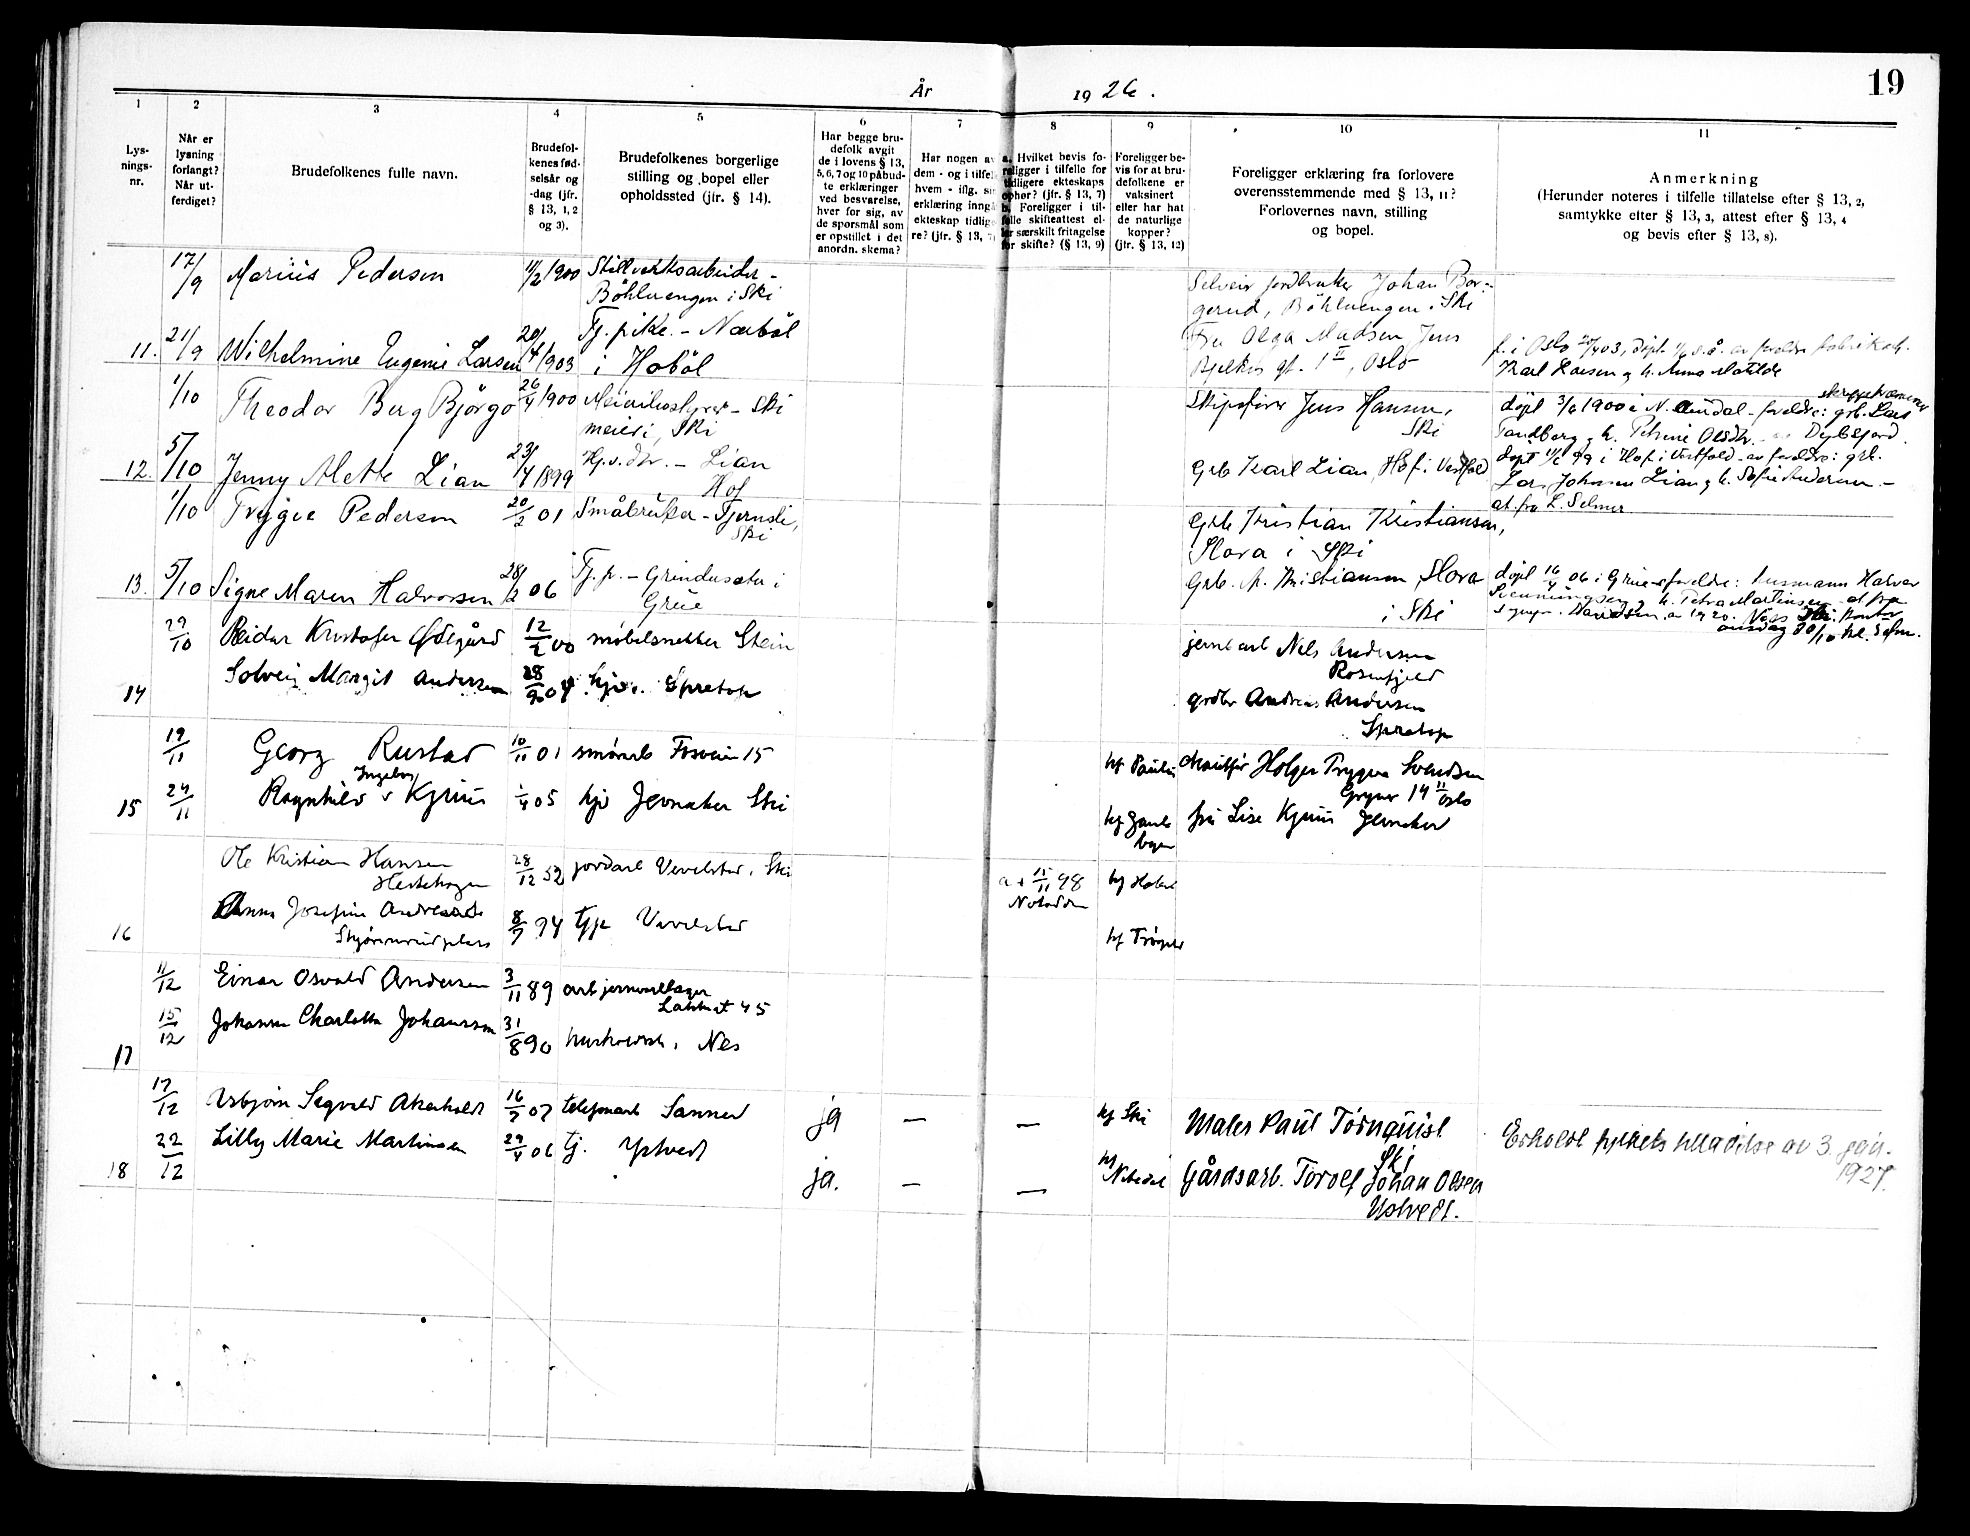 19
År 1926.
1 2 3 4 5 6 7 8 9 10 11
Lysningsnr.
Når er lysning forlangt? Når utferdiget?
Brudefolkenes fulle navn.
Brudefolkenes fødselsår og -dag (jfr. § 13, 1, 2 og 3).
Brudefolkenes borgerlige stilling og bopel eller opholdssted (jfr. § 14).
Har begge brudefolk avgit de i lovens § 13, 5, 6, 7 og 10 påbudte erklæringer ved besvarelse, hver for sig, av de spørsmål som er opstillet i det anordn. skema?
Har nogen av dem - og i tilfel hvem - iflg. sin erklæring inngå ekteskap tidligere? (jfr. § 13, 7)
a. Hvilket bevis foreligger i tilfelle for tidligere ekteskaps ophør? (jfr. § 13, 7)
b. Foreligger i tilfelle skifteattest eller særskilt fritagelse for skifte? (§ 13, 9)
Foreligger bevis for at brudefolkene er vaksinert eller har hat de naturlige kopper? (jfr. § 13, 12)
Foreligger erklæring fra forlovere overensstemmende med § 13, 11? Forlovernes navn, stilling og bopel.
Anmerkning
(Herunder noteres i tilfelle tillatelse efter § 13, 2, samtykke efter § 13, 3, attest efter § 13, 4 og bevis efter § 13, 8).
17/9 Marius Pedersen 11/2 1900 Stillverksarbeider - Böhlerengen i Ski
Selveir jordbruker Johan Borgerud, Böhlerengen i Ski
11. 21/9 Wilhelmine Eugenie Larsen 20/4 1903 Tj. pike. - Nærböl i Hoböl
Fru Olga Madsen Jens Bjelkes gt. 1 II, Oslo
f. i Oslo 20/4 03, döpt 1/6 s.å. av foreldre fabrikarb.
Karl Larsen og h. Anna Matilde
1/10 Theodor Berg Björgo 26/4 1900 Meieribestyrer - Ski meieri, Ski
Skipsförer Jens Hansen, Ski
döpt 3/6 1900 i N. Audal - foreldre: grb. Lars
Tandberg og h. Petrine Olsdtr.
12. 5/10 Jenny Alette Lian 23/4 1899 Hj.v. dtr. - Lian Hof
Grb Karl Lian, Hof i Vestfold
döpt 11/6 99 i Hof i Vestfold av foreldre: grb.
Lars Johnsen Lian og h. Sofie Andersen -
at. fra L. Selmer
1/10 Trygve Pedersen 20/2 01 Småbruker - Tjernsli, Ski
Grb Kristian Kristiansen, Slora i Ski
13. 5/10 Signe Maren Halvorsen 28/2 06 Tj. p. - Grindersæter i Grue
Grb. A. Kristiansen Slora i Ski
döpt 16/4 06 i Grue - foreldre: husmann Halvor
h. Petra Martinsen at fra
29/10 Reidar Kristofer Ødegård 12/2 00 møbelsnekker Stein
jernb arb Nils Andersen Rosenfjeld
14 Solveig Margit Andersen 28/9 04 hjv. Spretop
grdbr Andreas Andersen Spretop
19/11 Georg Rustad 10/11 01 småarb Fosveien 15
hf Paulus Holger Trygve Svendsen
Gryner 14 II Oslo
15 24/11 Ragnhild Ingeborg Kjuus 1/4 05 hjv Jernaker Ski
hf Gamlebyen fru Lise Kjuus Jernaker
Ole Kristian Hansen Hestehagen 28/12 52 jordarb Vevelstad, Ski
a + 15/11 98 Notodden
hf Hobøl
16 Anna Josefine Andreasdt 8/7 74 tjp Vevelstad
hf Trøgsta
11/12 Einar Osvald Andersen 3/11 89 arb jernvarelager
15/12 Johanne Charlotta Johansson 31/8 90 husholdsk. Nes
17
17/12 Asbjørn Sigvald Akerholdt 16/7 07 telefonarb Sanner ja — —
hf Ski Maler Paul Tørnquist Ski
Erholdt fylkets tilladelse av 3. jan. 1927.
18 22/12 Lilly Marie Martinsen 29/4 06 tj. Ystvedt ja. — —
hf Gårdsarb. Torolf Johan Olsen Ystvedt.